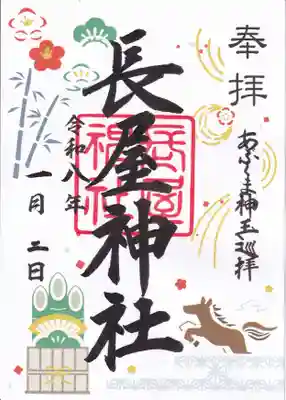 奉拝
あぶくま神玉巡拝
長屋神社
令和八年
一月二日